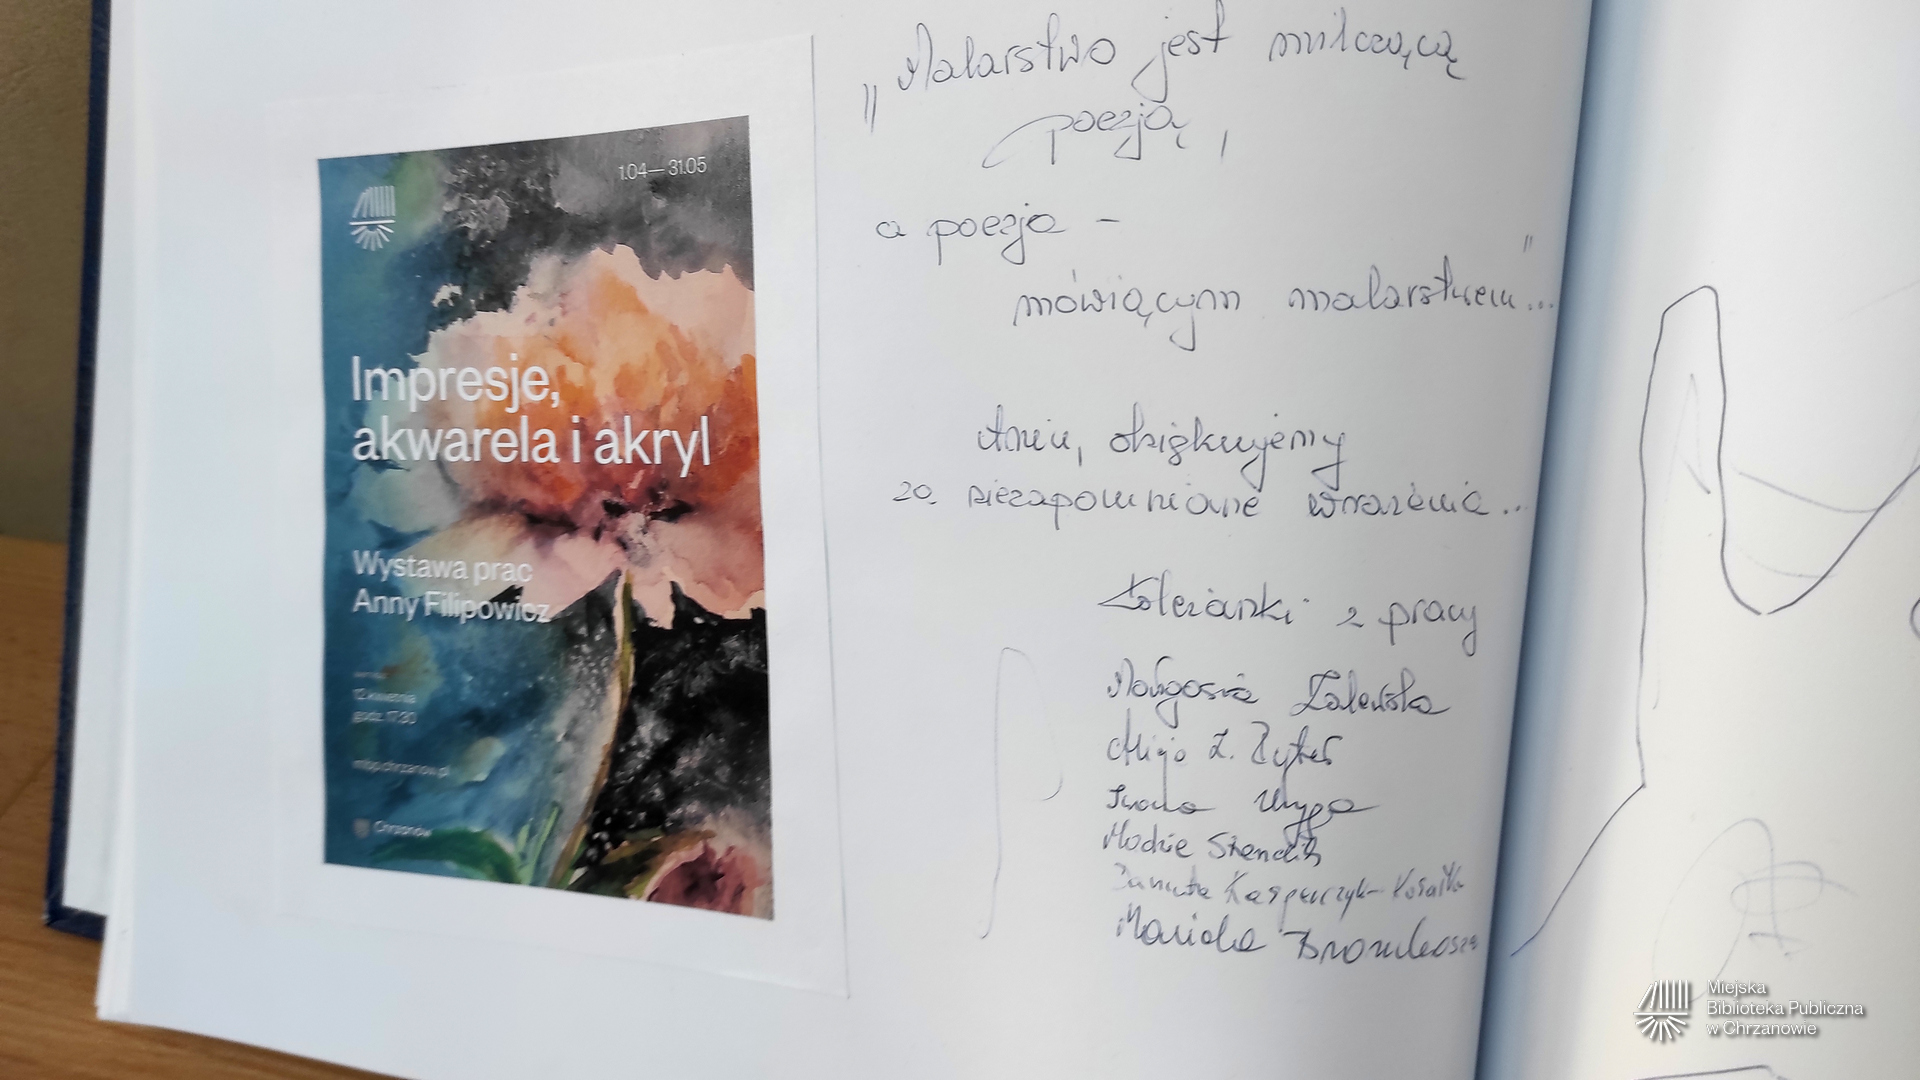 1.04—31.05
Impresje,
akwarela i akryl
Wystawa prac
Anny Filipowicz
12 kwietnia
godz. 17:30
mbp.chrzanow.pl
Chrzanów
„Malarstwo jest milczącą
poezją,
a poezja –
mówiącym malarstwem..."
Aniu, dziękujemy
za niezapomniane wrażenia...
Koleżanki z pracy
Małgosia Zalewska
Alicja
Iwona
Danuta Kasperczyk-
Miejska
Biblioteka Publiczna
w Chrzanowie